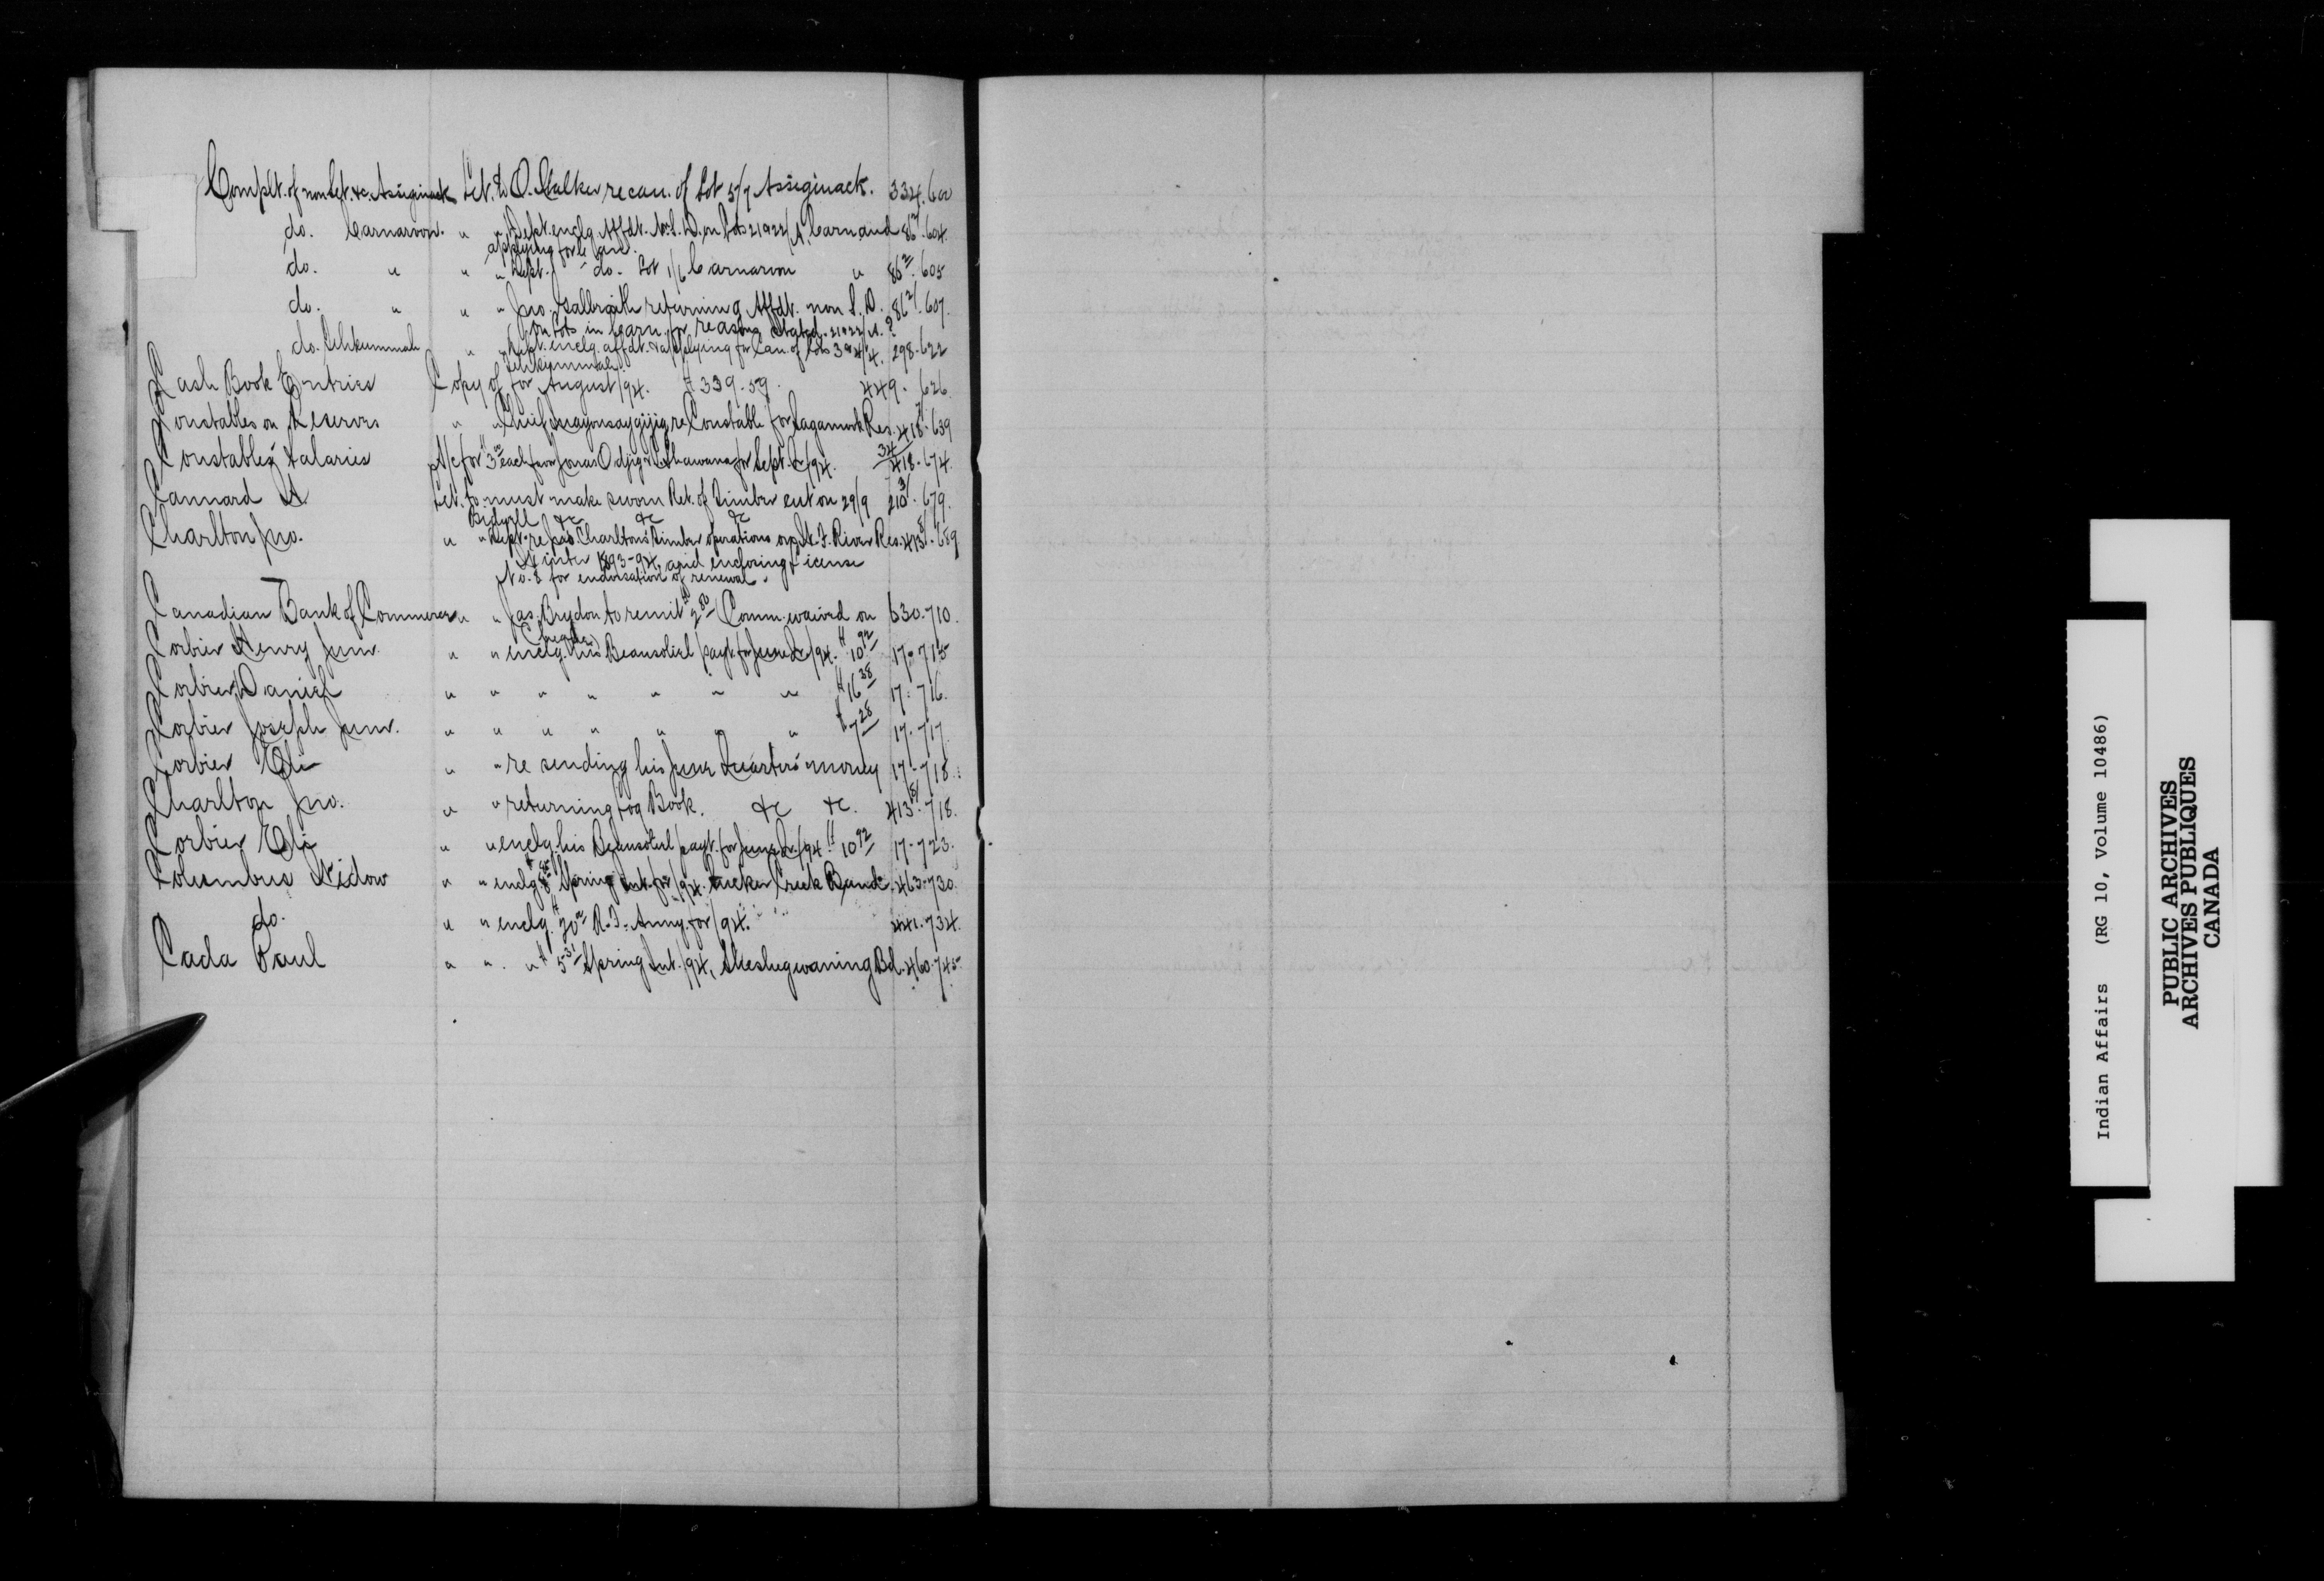 Complt. of non Set. &c. Assiginack Let. to O. Stalker re can. of Lot 5/7 Assiginack. 334. 600
do. Carnarvon. " " Dept. enclg. Affdt. N. S. D. on Lots 21 & 22/A. Carn. and 86². 604.
applying for can.
do. " " " Dept. do. Lot 1/6 Carnarvon " 86². 605
do. " " " Jno. Galbraith returning Affdt. non S. D. 86²/. 607.
on Lots in Carn. for reasons stated. 21 & 22/A.?
do. Tehkummah " " Dept. enclg. affdt. & applying for Can. of Lots 3 & 4/4. 298-622
Tehkummah
Cash Book Entries Copy of for August/94. $339.59. 449. 626
Constables on Reserves " " Chief re Constable for Sagamook Res. 418. 639
Constables' Salaries A/c for 3 each favor Jonas Odjig & Shawana for Sept. Q/94. 34/418-674.
Cannard A Let. to must make sworn Ret. of timber cut on 29/9 210³/. 679.
Bidwell &c &c &c
Charlton Jno. " " Dept. re Jno. Charlton's timber operations on River Res. 413⁸/. 689
Winter 1893-94, and enclosing License
No. 8 for endorsation of renewal.
Canadian Bank of Commerce " " Jas. Brydon to remit 2⁵⁰ Comm. waived on 630. 710.
(cheque)
Corbier Henry Junr. " " enclg. his Beausoliel payt. for June Q/94. $10⁹² 17-715
Corbier Daniel " " " " " " " $16³⁸ 17-716.
Corbier Joseph Junr. " " " " " " " $7²⁸ 17-717.
Corbier Eli " " re sending his June Quarters' money 17-718.
Charlton Jno. " " returning Log Book. &c &c. 413⁸/. 718.
Corbier Eli " " enclg. his Beausoliel payt. for June Q/94 $10⁹² 17-723.
Columbus Widow " " enclg. Spring Int. for/94. Sucker Creek Band. 463-730.
do. " " enclg. $20⁰⁰ R. T. Anny. for/94. 441-734.
Cada Paul " " " $5³¹ Spring Int./94, Sheshegwaning Bd. 460-745.
Indian Affairs (RG 10, Volume 10486)
PUBLIC ARCHIVES
ARCHIVES PUBLIQUES
CANADA